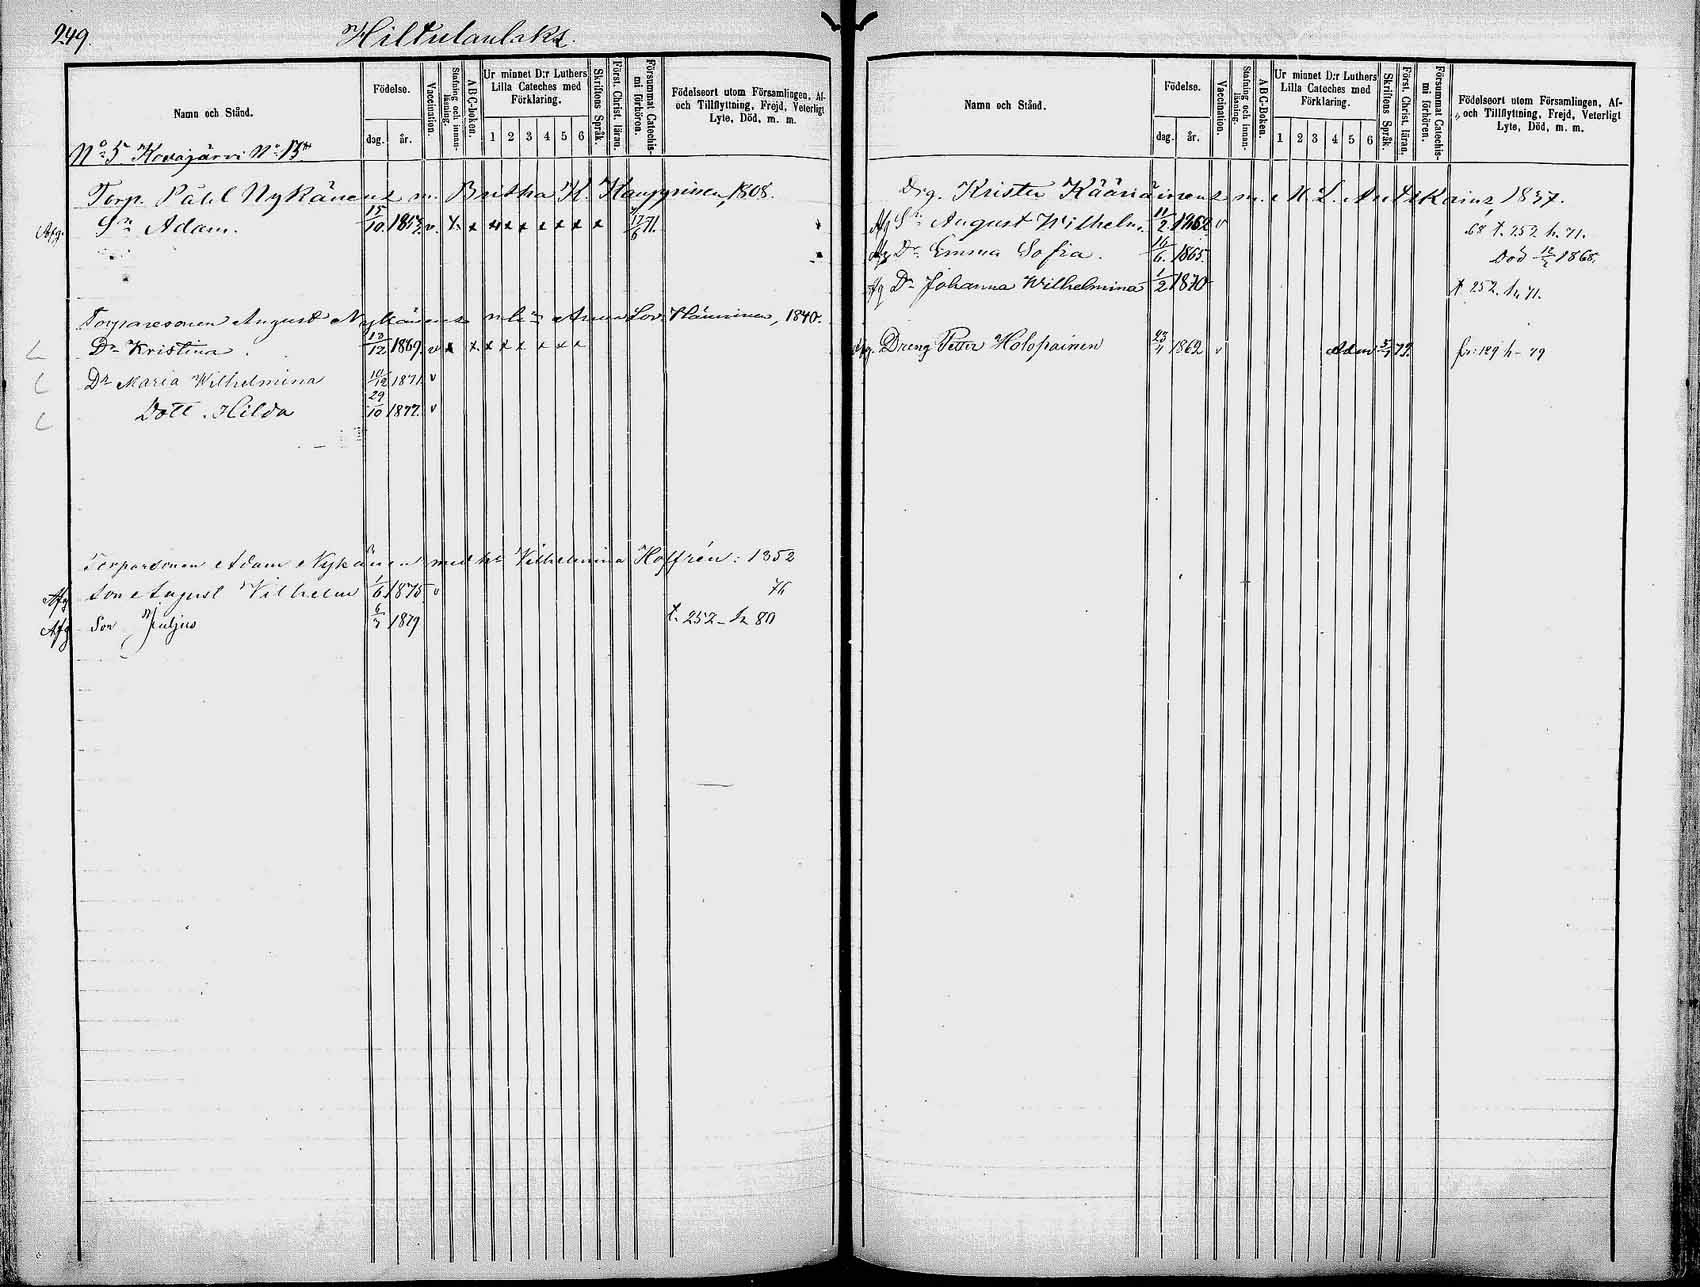 249.
Hiltulanlaks.
Namn och Stånd.
Födelse.
dag.
år.
Vaccination.
Stafning och innanläsning.
A B C-Boken.
Ur minnet D:r Luthers Lilla Cateches med Förklaring.
1 2 3 4 5 6
Skriftens Språk.
Först. Christ. läran.
Försummat Catechismi förhören.
Födelseort utom Församlingen, Af- och Tillflyttning, Frejd, Veterligt Lyte, Död, m. m.
No 5 Kovajärvi No 15
Torp. Påhl Nykänens m. Britha K. Kauppinen, 1808.
Afg. Sn Adam. 15/10 1853. v. x x x x x x x x x 17/6 71.
Torparesonen August Nykänens m. h. Anna Lov. Hänninen, 1840.
Dr Kristina. 13/12 1869. v x x x x x x x x
Dr Maria Wilhelmina 10/12 1871. v
Dott. Hilda 29/10 1877. v
Torparsonen Adam Nykänens med h. Vilhelmina Hoffrén: 1852
Afg Son August Vilhelm 1/6 1875. v 76
Afg Son Juljus 6/7 1879 t. 252 h 80
Namn och Stånd.
Födelse.
dag.
år.
Vaccination.
Stafning och innanläsning.
A B C-Boken.
Ur minnet D:r Luthers Lilla Cateches med Förklaring.
1 2 3 4 5 6
Skriftens Språk.
Först. Christ. läran.
Försummat Catechismi förhören.
Födelseort utom Församlingen, Af- och Tillflyttning, Frejd, Veterligt Lyte, Död, m. m.
Drg. Krister Kääriäinens m. M. L. Antikains, 1837.
Afg Sn August Wilhelm. 11/2 1862 v 68 t. 252 h. 71.
Afg Dr Emma Sofia. 16/6 1865. Död 12/2 1868.
Afg Dr Johanna Wilhelmina 1/2 1870 t 252. h 71.
Afg. Dreng Petter Holopainen 23/4 1862 v Adm 5/7 79. fr: 129 h - 79